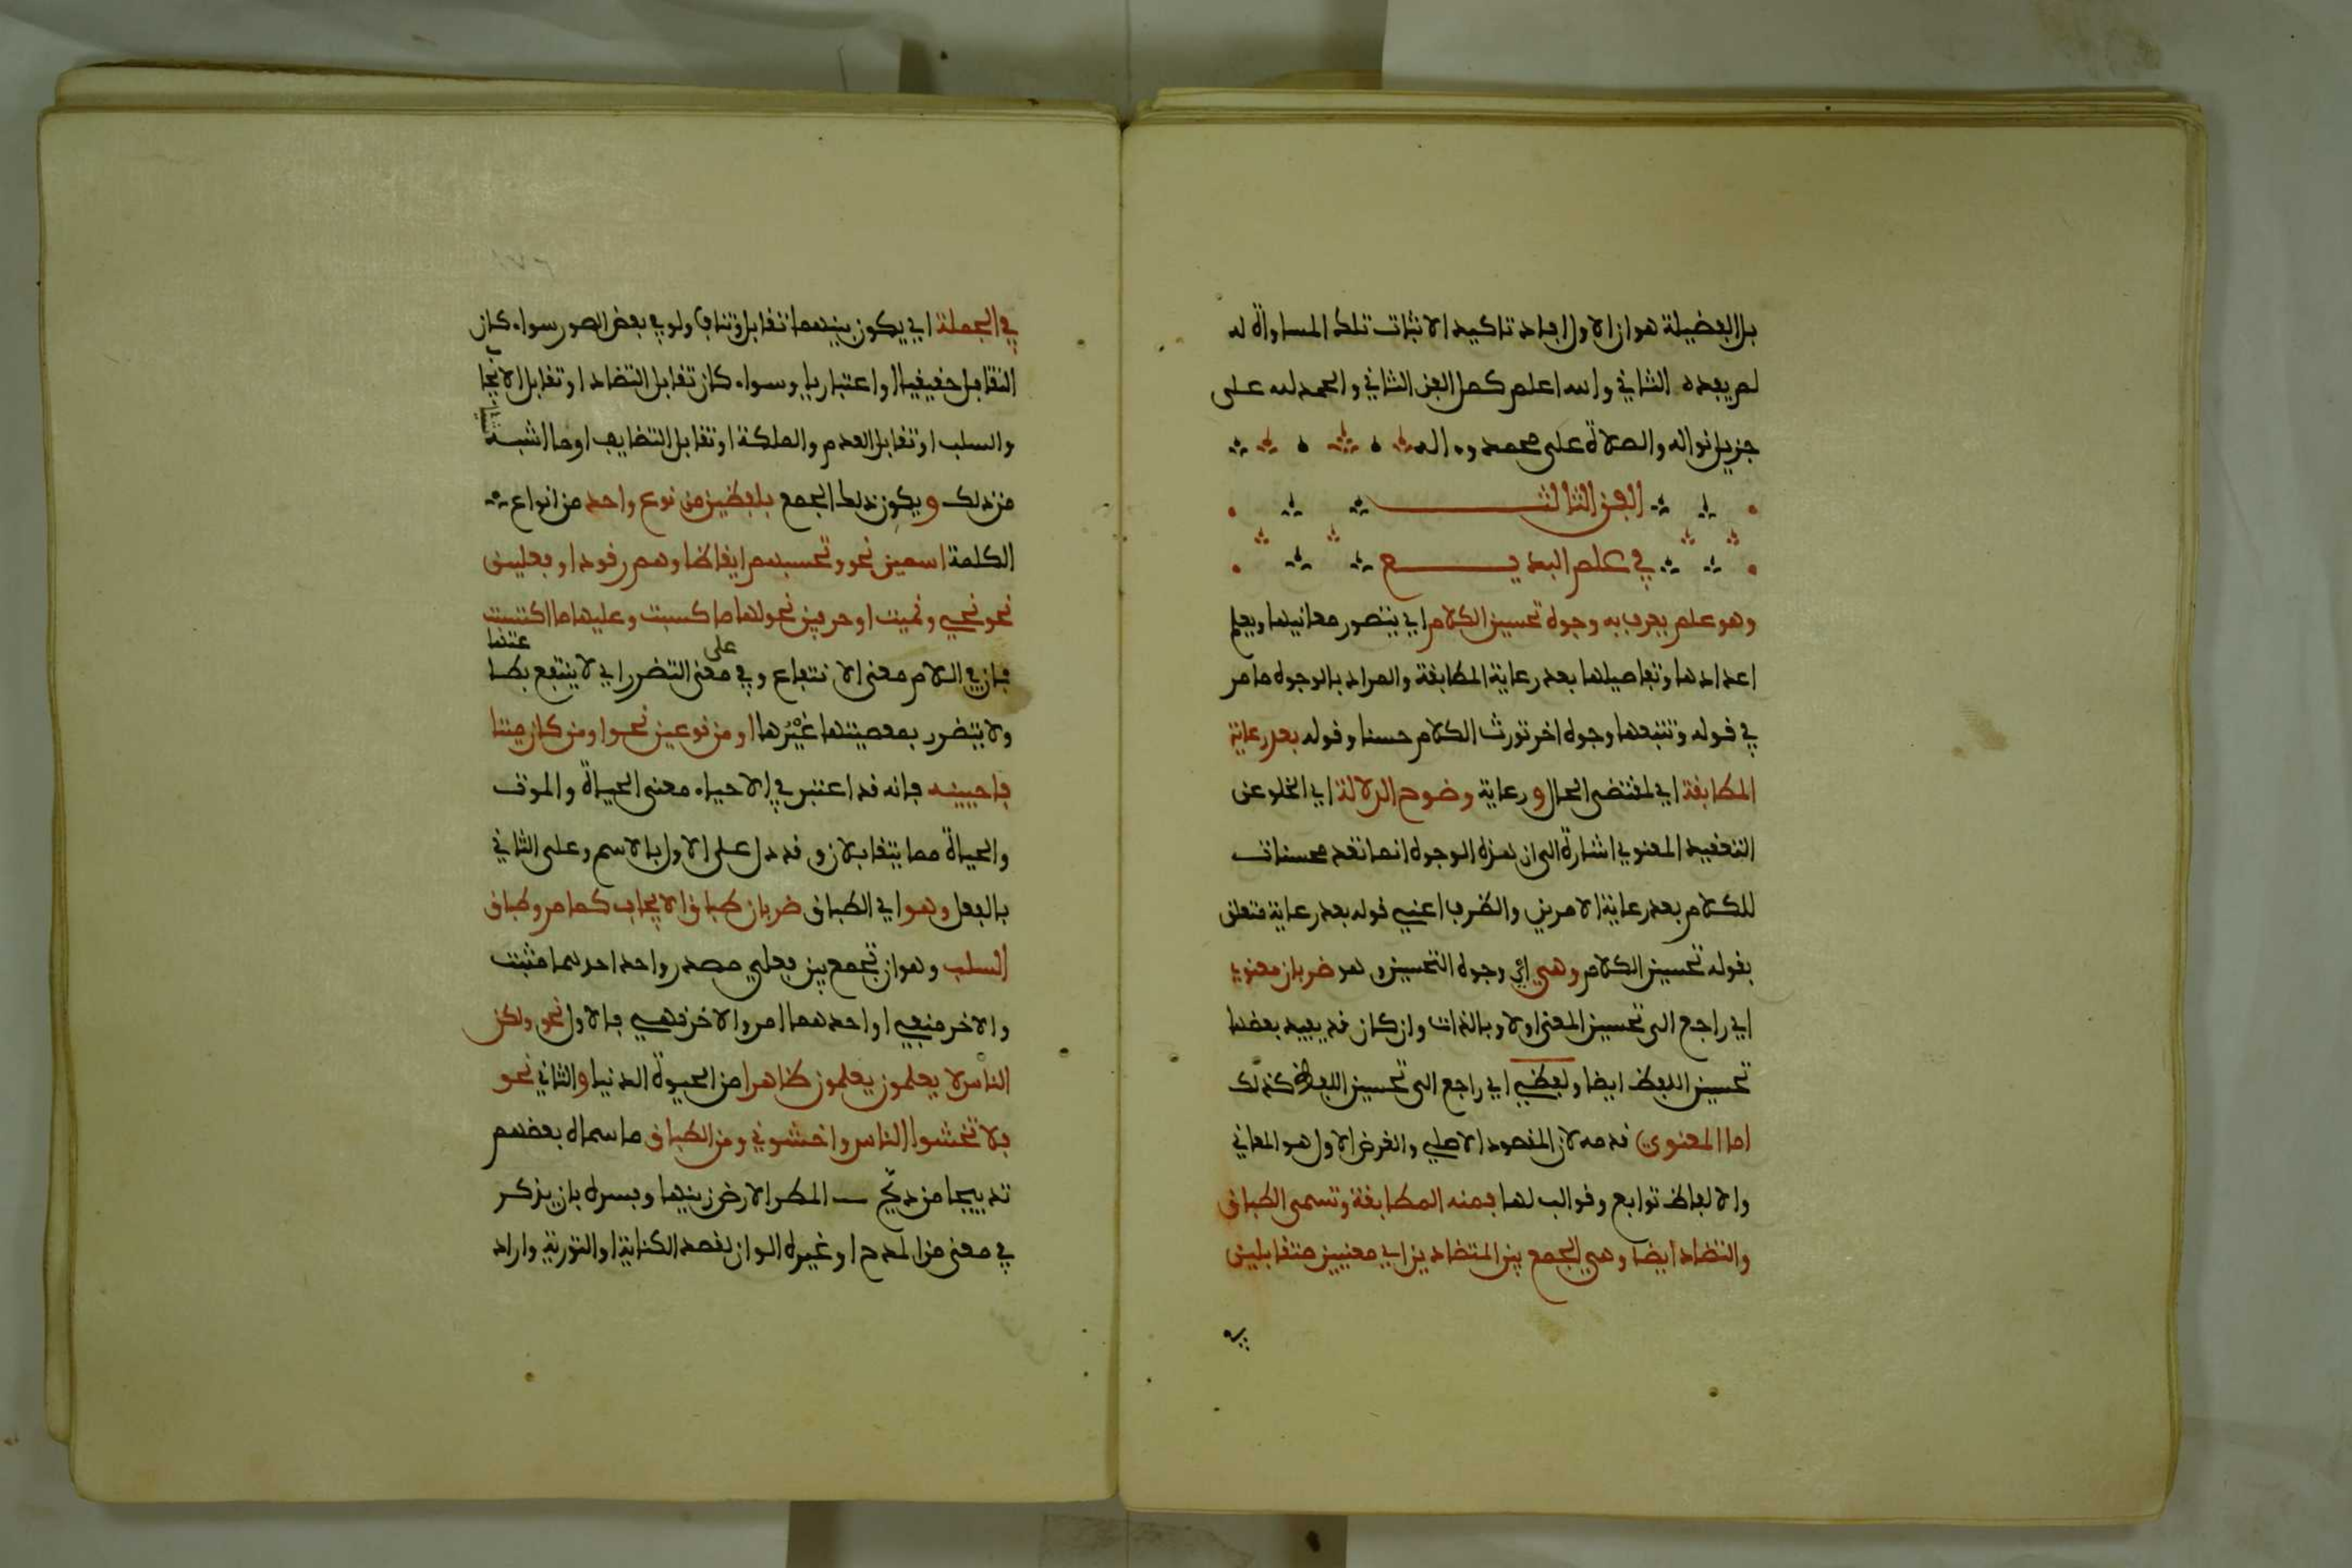 بل الفضيلة هو ان الاول افاد تاكيد الاثبات تلك المساواة له
لم يفده الثاني والله اعلم كمل الفن الثاني والحمد لله على
جزيل نواله والصلاة على محمد وءاله
الفن الثالث
في علم البديع
وهو علم يعرف به وجوه تحسين الكلام اي يتصور معانيها ويعلم
اعدادها وتفاصيلها بعد رعاية المطابقة والمراد بالوجوه ما مر
في قوله وتتبعها وجوه اخر تورث الكلام حسنا وقوله بعد رعاية
المطابقة اي لمقتضى الحال ورعاية وضوح الدلالة اي الخلو عن
التعقيد المعنوي اشارة الى ان هذه الوجوه انما تعد محسنات
للكلام بعد رعاية الامرين والظرف اعني قوله بعد رعاية متعلق
بقوله تحسين الكلام وهي اي وجوه التحسين وهو ضربان معنوي
اي راجع الى تحسين المعنى اولا وبالذات وان كان قد يفيد بعضها
تحسين اللفظ ايضا ولفظي اي راجع الى تحسين اللفظ كذلك
اما المعنوي قدمه لان المقصود الاصلي والغرض الاول هو المعاني
والالفاظ توابع وقوالب لها فمنه المطابقة وتسمى الطباق
والتضاد ايضا وهي الجمع بين المتضادين اي معنيين متقابلين
في
في الجملة اي يكون بينهما تقابل وتناف ولو في بعض الصور سواء كان
التقابل حقيقيا او اعتباريا وسواء كان تقابل التضاد او تقابل الايجاب
والسلب او تقابل العدم والملكة او تقابل التضايف او ما اشبه شيا
من ذلك ويكون ذلك الجمع بلفظين من نوع واحد من انواع
الكلمة اسمين نحو وتحسبهم ايقاظا وهم رقود او فعلين
نحو نحيي ونميت او حرفين نحو لها ما كسبت وعليها ما اكتسبت
فان في اللام معنى الانتفاع وفي على معنى التضرر اي لا ينتفع بطاعتها
ولا يتضرر بمعصيتها غيرها او من نوعين نحو اومن كان ميتا
فاحييناه فانه قد اعتبر في الاحياء معنى الحياة والموت
والحياة مما يتقابلان وقد دل على الاول بالاسم وعلى الثاني
بالفعل وهو اي الطباق ضربان طباق الايجاب كما مر وطباق
السلب وهو ان تجمع بين فعلي مصدر واحد احدهما مثبت
والاخر منفي او احدهما امر والاخر نهي فالاول نحو ولكن
الناس لا يعلمون يعلمون ظاهرا من الحيوة الدنيا والثاني نحو
فلا تخشوا الناس واخشوني ومن الطباق ما سماه بعضهم
تدبيجا من دبج المطر الارض زينها وفسره بان يذكر
في معنى من المدح او غيره الوان لقصد الكناية او التورية واراد